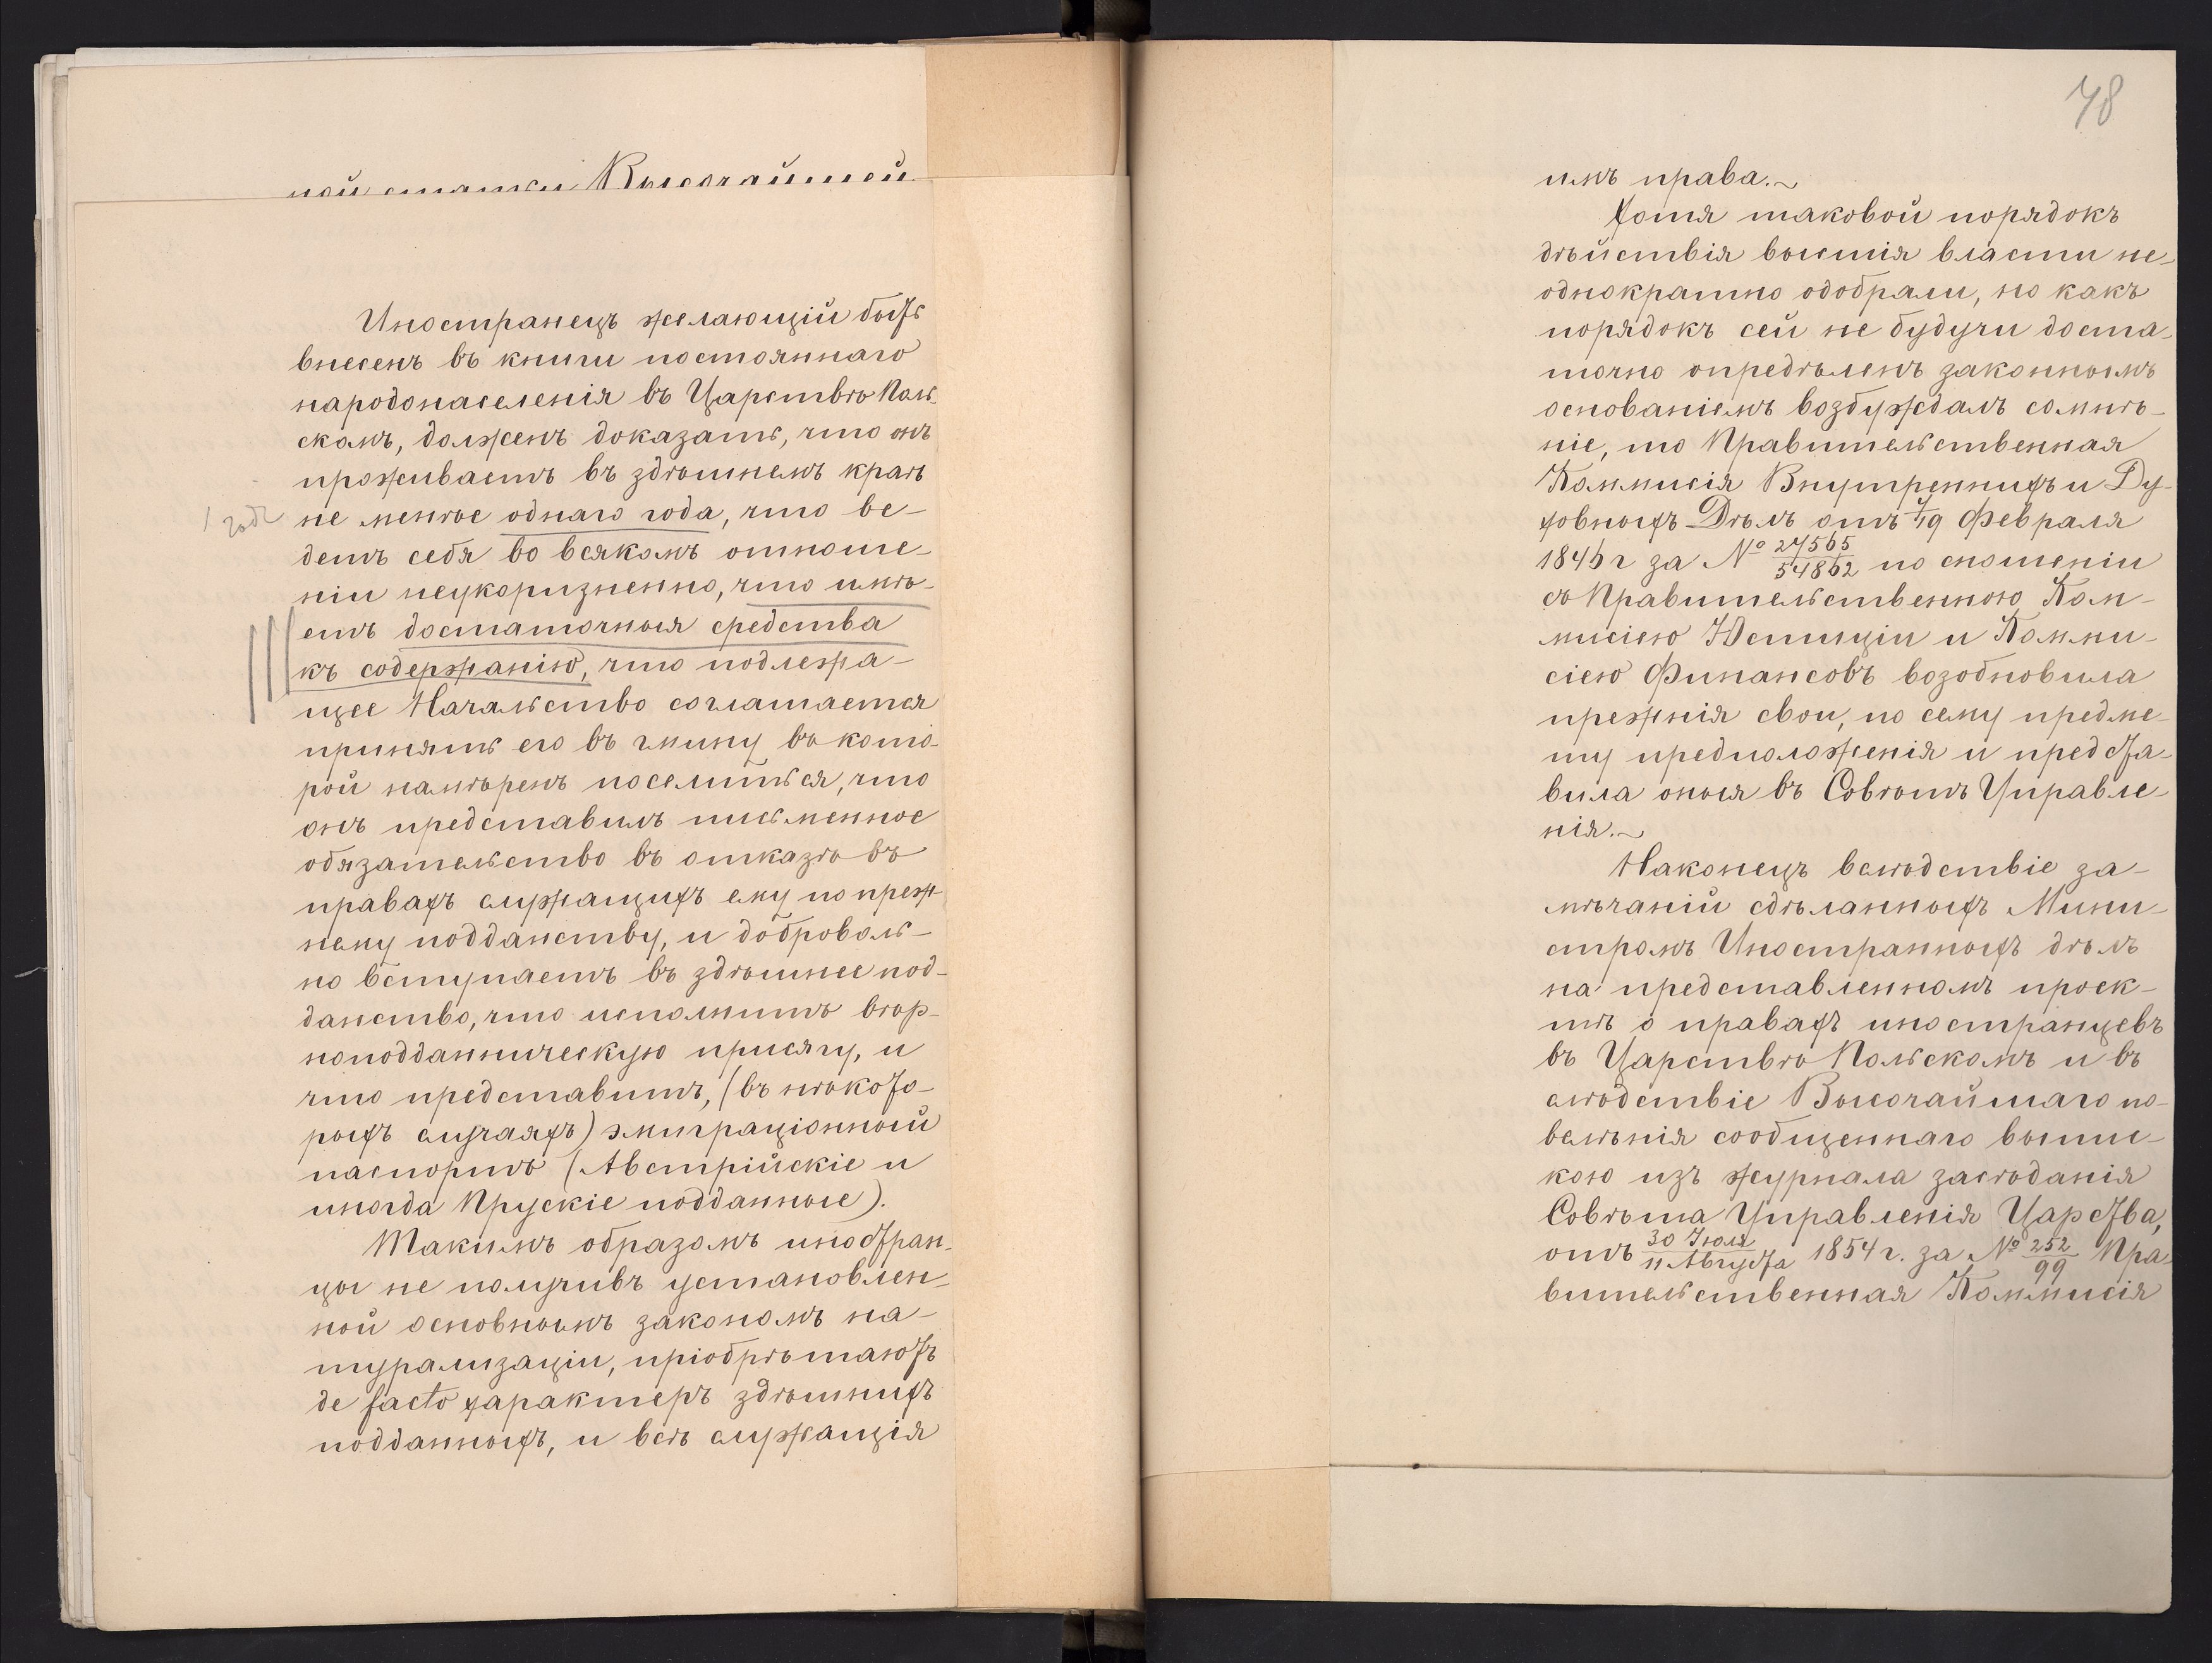 ной статьи Высочайшей
Иностранецъ желающій быть
внесенъ въ книги постояннаго
народонаселенія въ Царствѣ Поль-
скомъ, долженъ доказать, что онъ
проживаетъ въ здѣшнемъ краѣ
1 годъ
не менѣе однаго года, что ве-
детъ себя во всякомъ отноше-
ніи неукоризненно, что имѣ-
етъ достаточныя средства
къ содержанію, что подлежа-
щее Начальство соглашается
принять его въ гмину въ кото-
рой намѣренъ поселиться, что
онъ представилъ письменное
обязательство въ отказѣ въ
правахъ служащихъ ему по преж-
нему подданству, и доброволь-
но вступаетъ въ здѣшнее под-
данство, что исполнитъ вѣр-
ноподданническую присягу, и
что представитъ, (въ нѣкото-
рыхъ случаяхъ) эмиграціонный
паспортъ (Австрійскіе и
иногда Прускіе подданные).
Такимъ образомъ иностран-
цы не получивъ установлен-
ной основнымъ закономъ на-
турализаціи, пріобрѣтаютъ
de facto характеръ здѣшнихъ
подданныхъ, и всѣ служащія
78
имъ права.~
Хотя таковой порядокъ
дѣйствія высшія власти не-
однократно одобрали, но какъ
порядокъ сей не будучи доста-
точно опредѣленъ законнымъ
основаніемъ возбуждалъ сомнѣ-
ніе, то Правительственная
Коммисія Внутреннихъ и Ду-
ховныхъ Дѣлъ отъ 7/19 Февраля
1846 г за № 27565/54862 по сношеніи
съ Правительственною Ком-
мисіею Юстиціи и Комми-
сіею Финансовъ возобновила
прежнія свои, по сему предме-
ту предположенія и предста-
вила оныя въ Совѣтъ Управле-
нія.~
Наконецъ вслѣдствіе за-
мѣчаній сдѣланныхъ Мини-
стромъ Иностранныхъ дѣлъ
на представленномъ проек-
тѣ о правахъ иностранцевъ
въ Царствѣ Польскомъ и въ
слѣдствіе Высочайшаго по-
велѣнія сообщеннаго выпис-
кою изъ журнала засѣданія
Совѣта Управленія Царства,
отъ 30 Іюля/11 Августа 1854 г. за № 252/99 Пра-
вительственная Коммисія